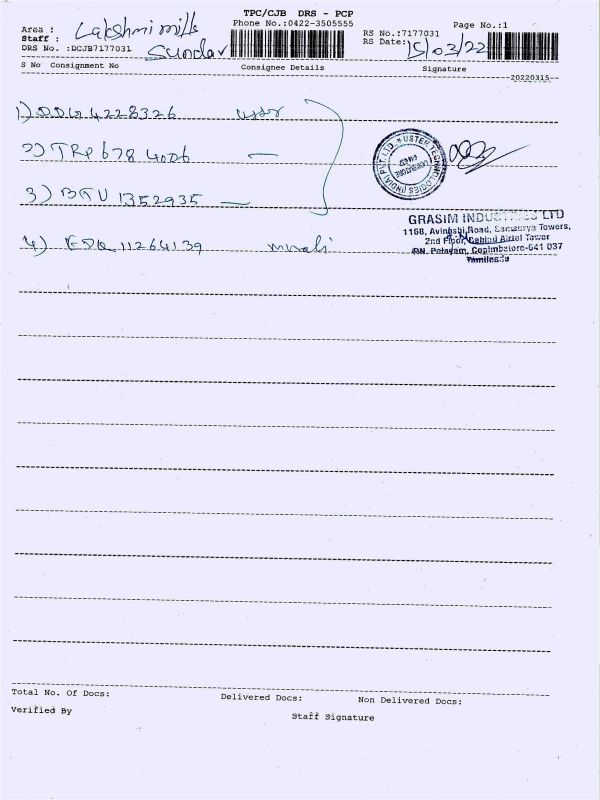 TPC/CJB DRS - PCP
Phone No.:0422-3505555
Page No.:1
Area : Lakshmi mills
RS No.:7177031
Staff : Sundar
RS Date: 15/03/22
DRS No. :DCJB7177031
S No Consignment No Consignee Details Signature
20220315
1) 4228326
2) 678 4006
USTER TECHNOLOGIES (INDIA) PVT. LTD.
COIMBATORE
3) BTV 1352935
GRASIM INDUSTRIES LTD
1168, Avinashi Road, Towers,
2nd Floor, Behind Airtel Tower
P.N. Palayam, Coimbatore-641 037
Tamilnadu
4) 11264139 murali
Total No. Of Docs: Delivered Docs: Non Delivered Docs:
Verified By Staff Signature